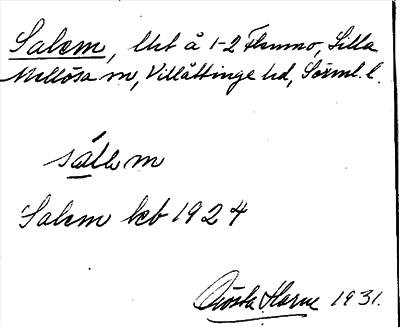 Salem, lht å 1-2 Flenmo, Lilla
Mellösa sn, Villåttinge hd, Sörml. l.
sálem
Salem kb 1924
Gösta Harne 1931.